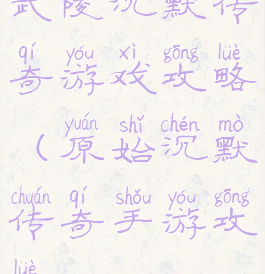 武陵沉默传
qí yóu xì gōng lüè
奇游戏攻略
yuán shǐ chén mò
(原始沉默
chuán qí shǒu yóu gōng
传奇手游攻
lüè